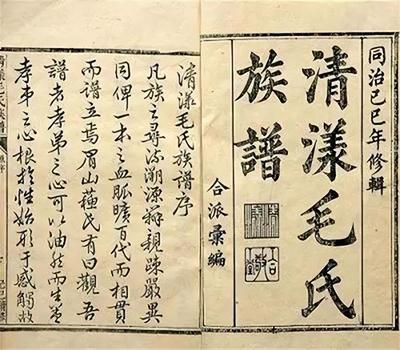 同治己巳年修輯
清漾毛氏
族譜
合派彙編
清漾毛氏族譜序
凡族之尋流溯源辨親疎嚴異
同俾一本之血脈曠百代而相貫
而譜立焉眉山蘇氏有曰觀吾
譜者孝弟之心可以油然而生蓋
孝弟之心根於性始形于感觸故